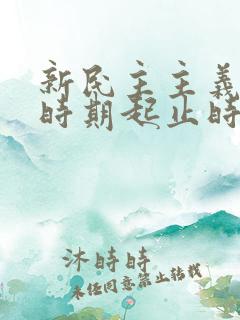 新民主主義
時期起止時
沐時時
未任同意禁止轉載